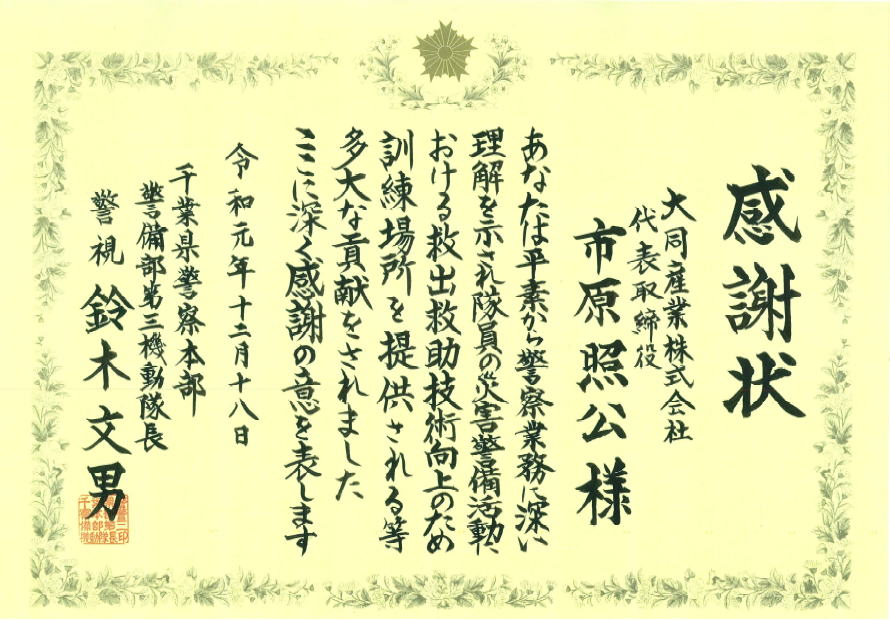 感謝状
大同産業株式会社
代表取締役
市原照公様
あなたは平素から警察業務に深い
理解を示され隊員の災害警備活動に
おける救出救助技術向上のため
訓練場所を提供される等
多大な貢献をされました
ここに深く感謝の意を表します
令和元年十二月十八日
千葉県警察本部
警備部第三機動隊長
警視 鈴木文男